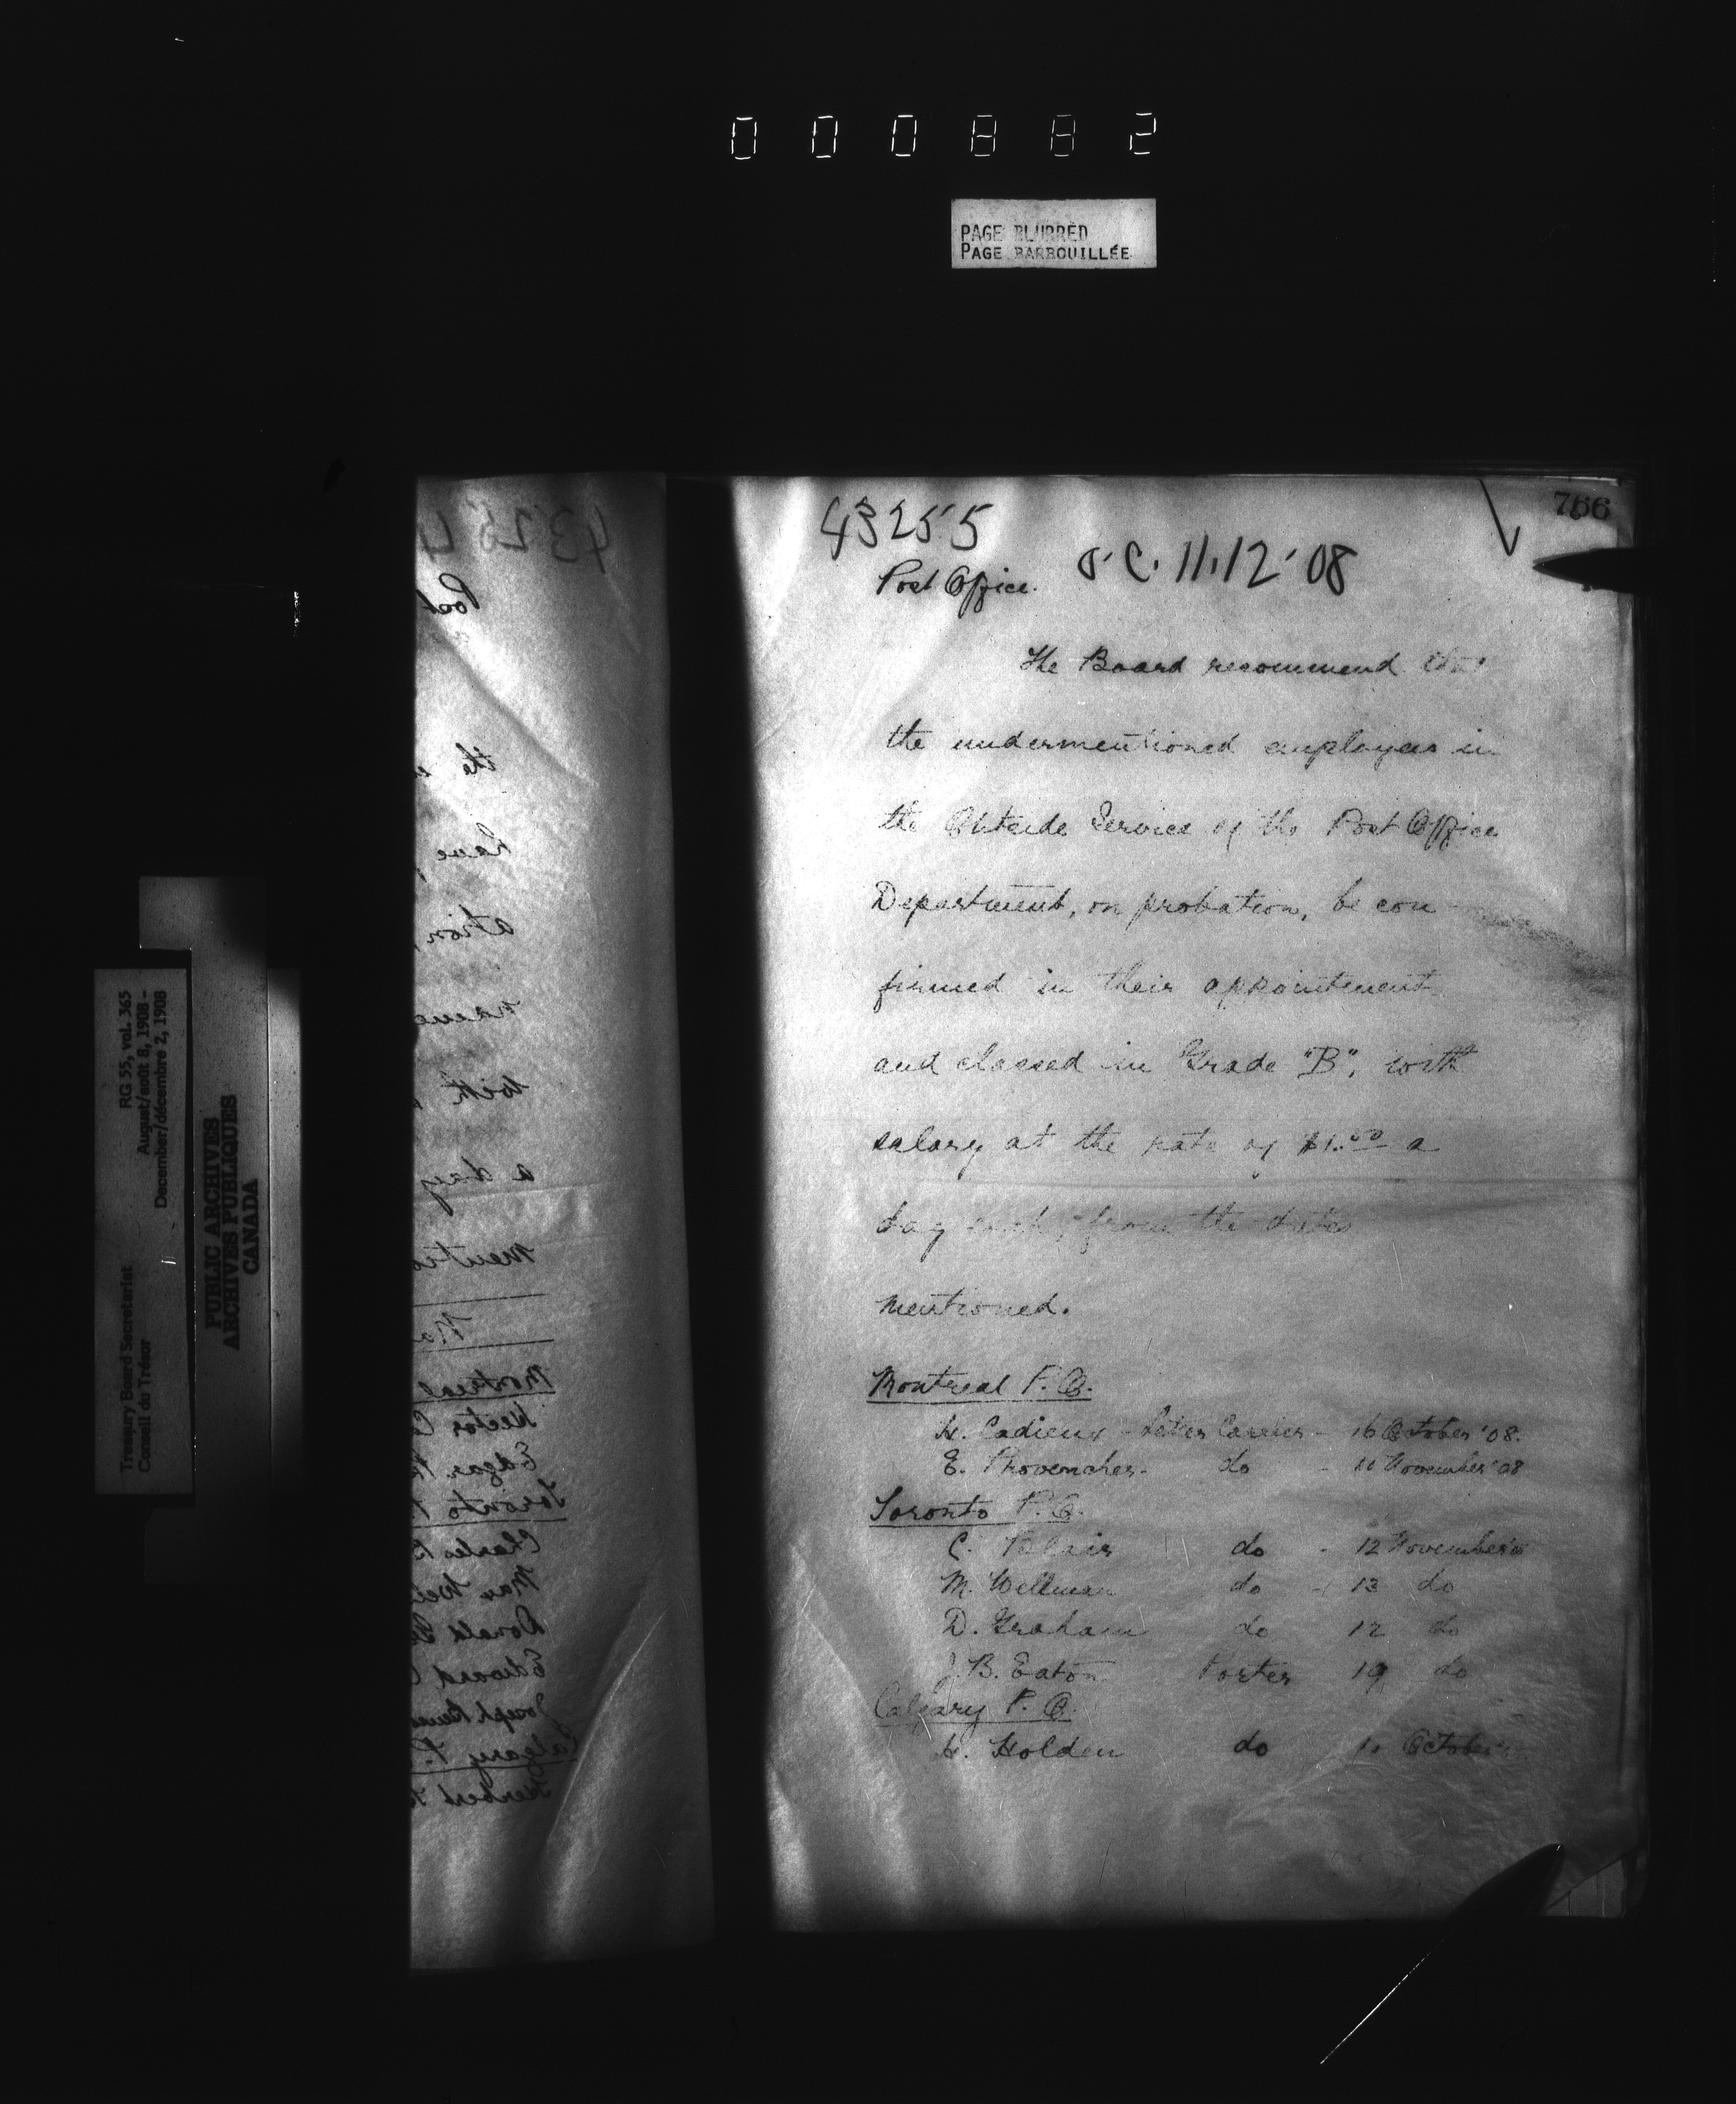 000882
PAGE BLURRED
PAGE BARBOUILLÉE
766
43255
O.C. 11.12.08
Post Office.
The Board recommend that
the undermentioned employees in
the Outside Service of the Post Office
Department, on probation, be con-
firmed in their appointment
and classed in Grade "B", with
salary at the rate of $1.50 a
day each, from the dates
mentioned.
Montreal P.O.
H. Cadieux - Letter Carrier - 16 October '08.
E. Provencher - do - 10 November '08
Toronto P.O.
C. Blair do - 12 November
M. Wellman do - 13 do
D. Graham do 12 do
J.B. Eaton Porter 19 do
Calgary P.O.
H. Holden do October
43254
Post
the
have
ation
name
with
a day
mentio
Na
Montreal
Hector C
Edgar
Toronto P
Charles B
Max Wel
Donald
Edward
Joseph
Calgary P.
Herbert
RG 55, vol. 365
August/août 8, 1908 -
December/décembre 2, 1908
Treasury Board Secretariat
Conseil du Trésor
PUBLIC ARCHIVES
ARCHIVES PUBLIQUES
CANADA